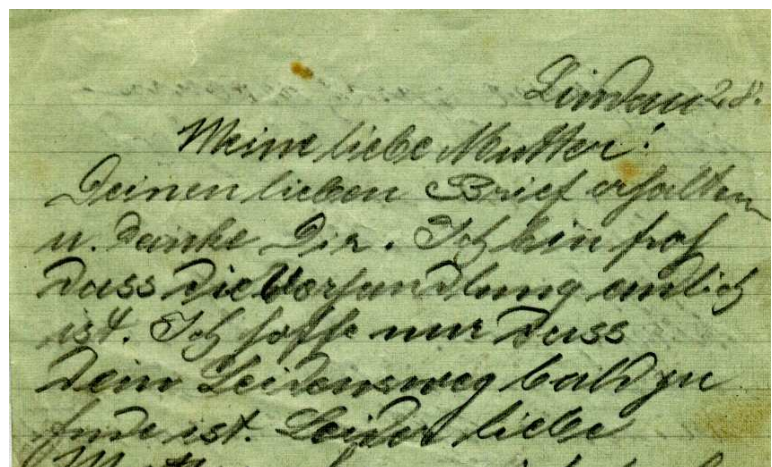 Lindau 2.8.
Meine liebe Mutter!
Deinen lieben Brief erhalten
u. danke Dir. Ich bin froh
dass die Verhandlung endlich
ist. Ich hoffe nur dass
Dein Leidensweg bald zu
Ende ist. Leider liebe